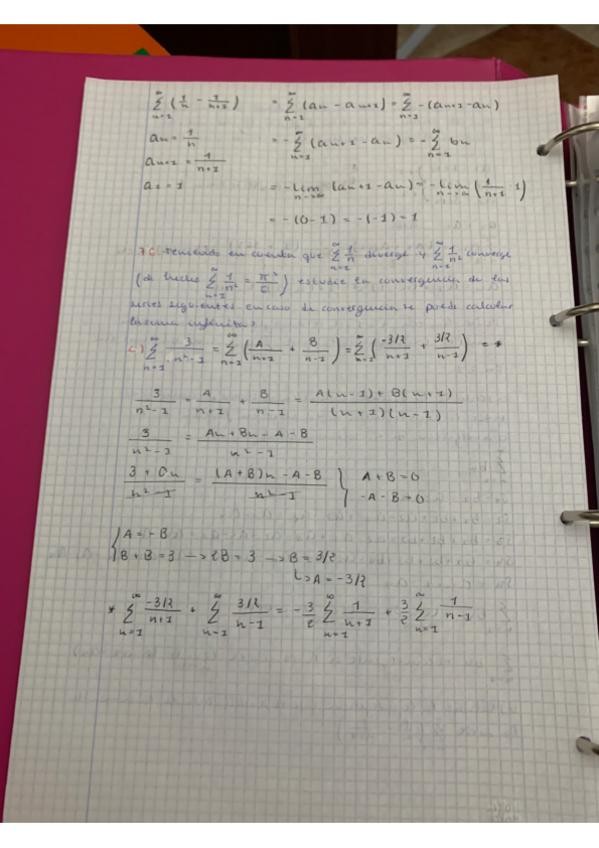 ∞
∑ (1/n - 1/(n+1)) = ∑ (an - an+1) = ∑ -(an+1 - an)
n=1
an = 1/n = -∑ (an+1 - an) = -∑ bn
an+1 = 1/(n+1)
a1 = 1 = -lim (an+1 - a1) = -lim (1/(n+1) - 1)
= -(0-1) = -(-1) = 1
7C. Teniendo en cuenta que ∑ 1/n diverge y ∑ 1/n² converge
(de hecho ∑ 1/n² = π²/6) estudie la convergencia de las
series siguientes en caso de convergencia se puede calcular
la suma infinita?
c) ∑ 3/(n²-1) = ∑ (A/(n+1) + B/(n-1)) = ∑ ((-3/2)/(n+1) + (3/2)/(n-1)) = *
3/(n²-1) = A/(n+1) + B/(n-1) = (A(n-1) + B(n+1))/((n+1)(n-1))
3/(n²-1) = (An + Bn - A - B)/(n²-1)
(3 + 0n)/(n²-1) = ((A+B)n - A - B)/(n²-1) } A+B=0
-A-B=0
{ A = -B
B + B = 3 → 2B = 3 → B = 3/2
↳ A = -3/2
* ∑ (-3/2)/(n+1) + ∑ (3/2)/(n-1) = -3/2 ∑ 1/(n+1) + 3/2 ∑ 1/(n-1)